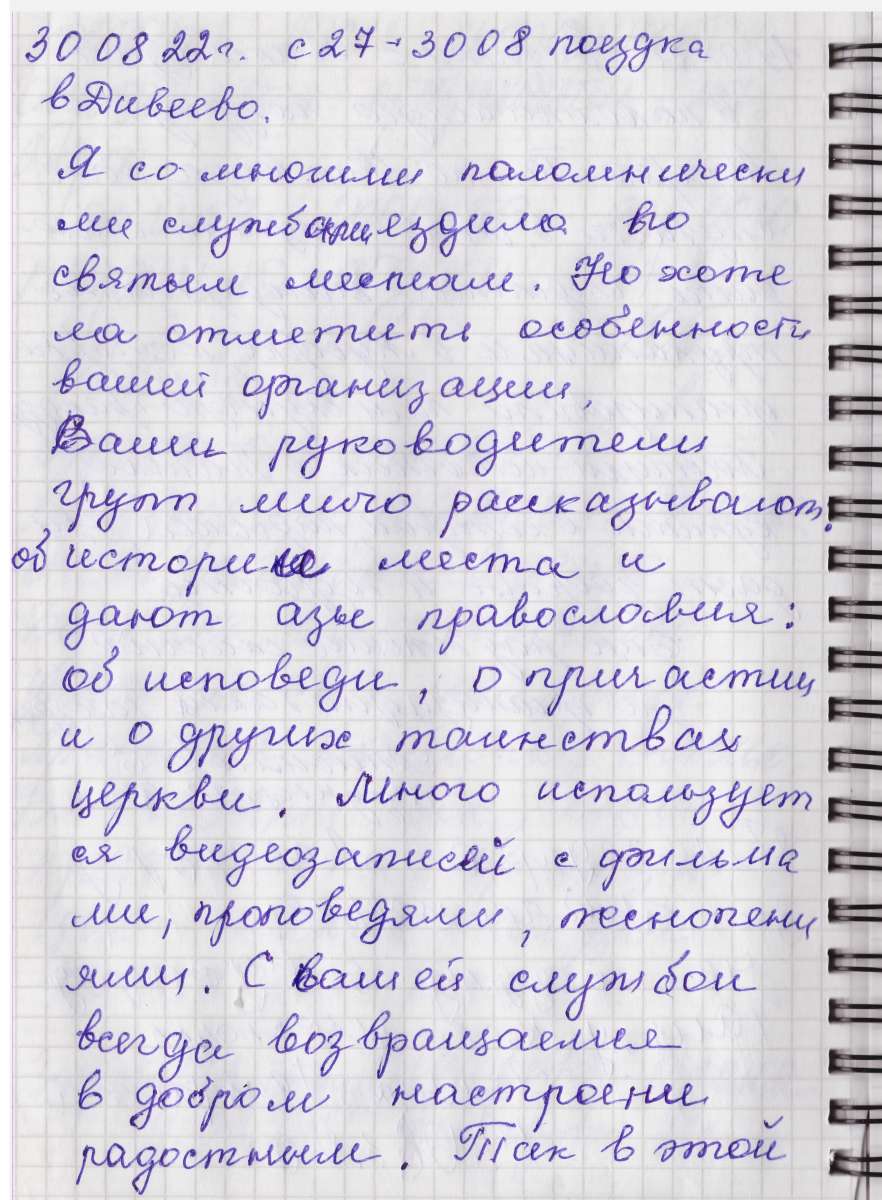 30 08 22г. с 27 - 30 08 поездка
в Дивеево.
Я со многими паломнически
ми службами ездила по
святым местам. Но хоте
ла отметить особенности
вашей организации,
Ваши руководители
групп много рассказывают.
об истории места и
дают азы православия:
об исповеди, о причастии
и о других таинствах
церкви. Много использует
ся видеозаписей с фильма
ми, проповедями, песнопени
ями. С вашей службой
всегда возвращаемся
в добром настроени
радостным. Так в этой